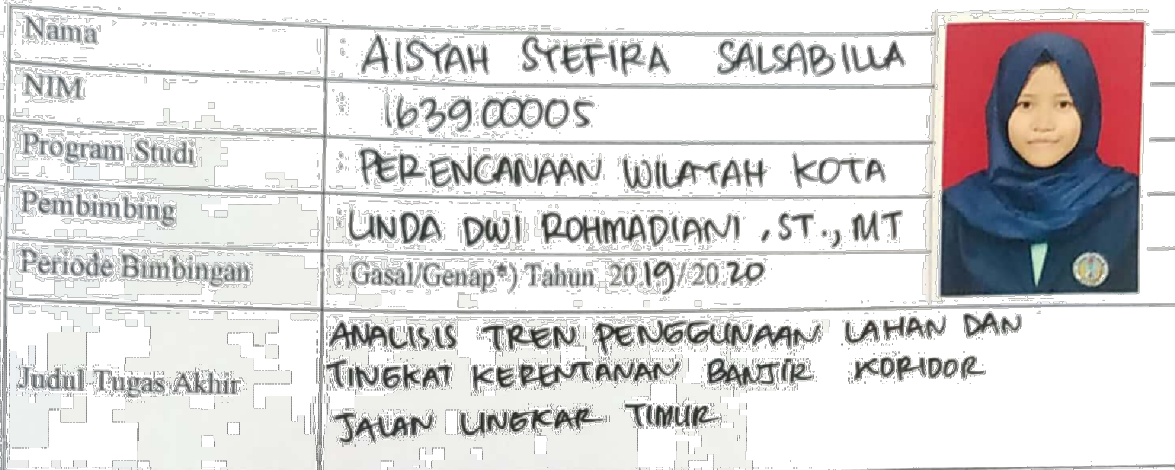 Nama : AISYAH SYEFIRA SALSABILLA
NIM : 163900005
Program Studi : PERENCANAAN WILAYAH KOTA
Pembimbing : LINDA DWI ROHMADIANI, ST., MT
Periode Bimbingan : Gasal/Genap*) Tahun 2019/2020
Judul Tugas Akhir
ANALISIS TREN PENGGUNAAN LAHAN DAN
TINGKAT KERENTANAN BANJIR KORIDOR
JALAN LINGKAR TIMUR